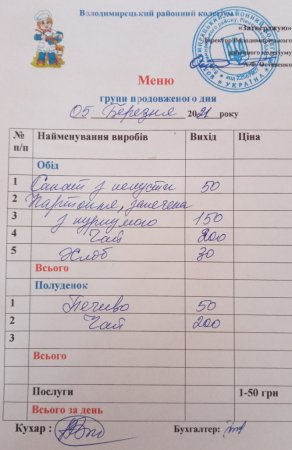 Володимирецький районний колегіум
«Затверджую»
Меню
групи продовженого дня
05 Березня 2021 року
№ п/п Найменування виробів Вихід Ціна
Обід
1 Салат з капусти 50
2 Картопля, запечена
3 з куркумою 150
4 Чай 200
5 Хліб 30
Всього
Полуденок
1 Печиво 50
2 Чай 200
3
Всього
Послуги 1-50 грн
Всього за день
Кухар: Бухгалтер: